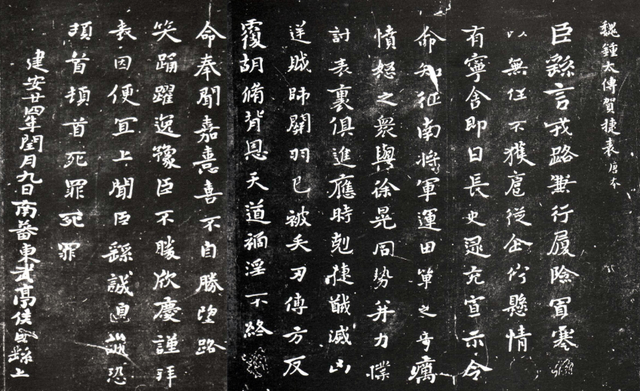 魏鍾太傅賀捷表 唐本
臣繇言戎路兼行履險冒寒
以無任不獲扈從企佇懸情
有寧舍即日長史逯充宣示令
命知征南將軍運田單之奇厲
憤怒之衆與徐晃同勢并力撲
討表裏俱進應時剋捷馘滅凶
逆賊帥關羽已被矢刃傅方反
覆胡脩背恩天道禍淫不終
命奉聞嘉憙喜不自勝望路
笑踊躍逸豫臣不勝欣慶謹拜
表因便宜上聞臣繇誠惶誠恐
頓首頓首死罪死罪
建安廿四年閏月九日南蕃東武亭侯臣繇上